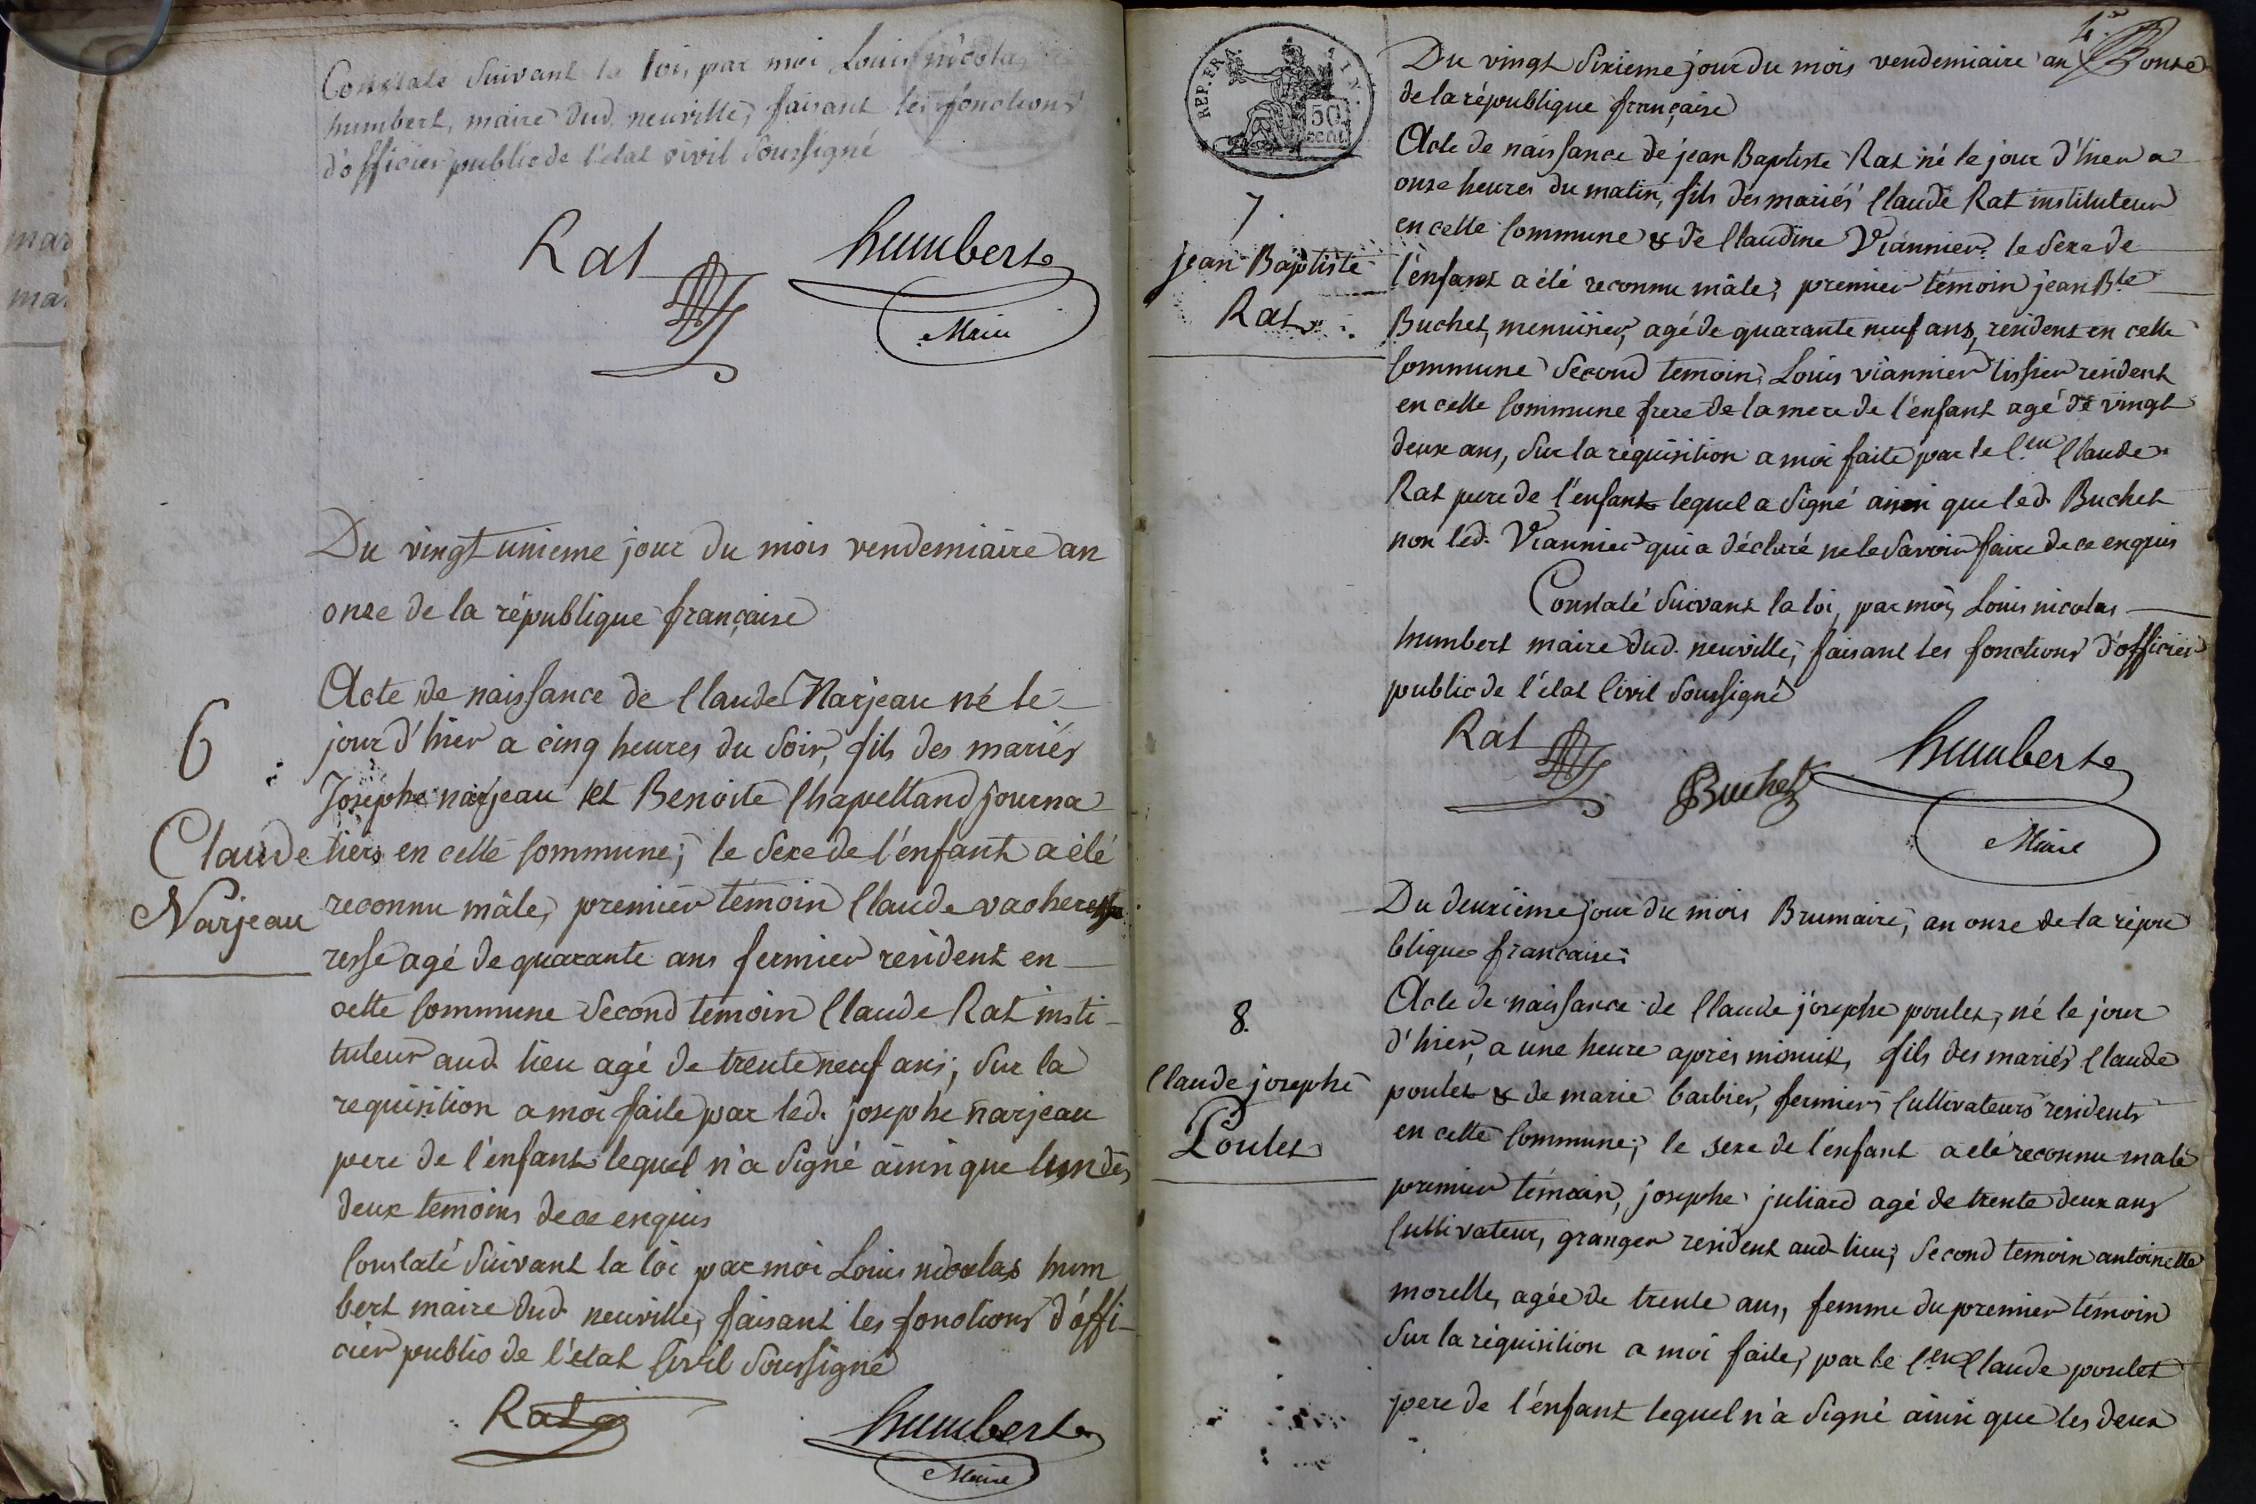 Constaté suivant la loi, par moi Louis nicolas
humbert, maire dud. neuville, faisant les fonctions
d'officier public de l'état civil soussigné
Rat humbert
Maire
Du vingt unieme jour du mois vendemiaire an
onze de la république française
Acte de naissance de Claude Narjeau né le
jour d'hier a cinq heures du soir, fils des mariés
Josephe narjeau et Benoite Chapelland journa
6
Claude
Narjeau
liers en cette Commune; le sexe de l'énfant a été
reconnu mâle, premier témoin Claude vacheresse
resse agé de quarante ans fermier resident en
cette Commune second temoin Claude Rat insti-
tuteur aud. lieu agé de trente neuf ans; sur la
requisition a moi faite par led. josephe narjeau
pere de l'énfant lequel n'a signé ainsi que l'un des
deux temoins de ce enquis
Constaté suivant la loi par moi Louis nicolas hum
bert maire dud. neuville, faisant les fonctions d'offi-
cier public de l'état Civil soussigné
Rat humbert
Maire
REP. FRA.
50
CENT.
Du vingt sixieme jour du mois vendemiaire an onze
de la république française
7.
jean Baptiste
Rat
Acte de naissance de jean Baptiste Rat né le jour d'hier a
onze heures du matin, fils des mariés Claude Rat instituteur
en cette Commune & de Claudine Viannier. le sexe de
l'énfant a été reconnu mâle, premier témoin jean Bte
Buchet, menuisier, agé de quarante neuf ans, resident en cette
Commune second temoin, Louis viannier tissier resident
en cette Commune frere de la mere de l'énfant agé de vingt
deux ans, sur la réquisition a moi faite par le C.en Claude
Rat pere de l'énfant lequel a signé ainsi que led. Buchet
non led. Viannier qui a déclaré ne le savoir faire de ce enquis
Constaté suivant la loi, par moi, Louis nicolas
humbert maire dud. neuville, faisant les fonctions d'officier
public de l'état Civil soussigné
Rat Buchet humbert
Maire
Du deuxième jour du mois Brumaire, an onze de la répu
blique française
8.
Claude josephe
Poulet
Acte de naissance de Claude josephe poulet, né le jour
d'hier, a une heure après minuit, fils des mariés Claude
poulet & de marie barbier, fermiers Cultivateurs residents
en cette Commune; le sexe de l'énfant a été reconnu male
premier témoin, josephe juliard agé de trente deux ans
Cultivateur, granger resident aud. lieu; second temoin antoinette
morelle, agée de trente ans, femme du premier témoin
sur la réquisition a moi faite, par le C.en Claude poulet
pere de l'énfant lequel n'a signé ainsi que les deux